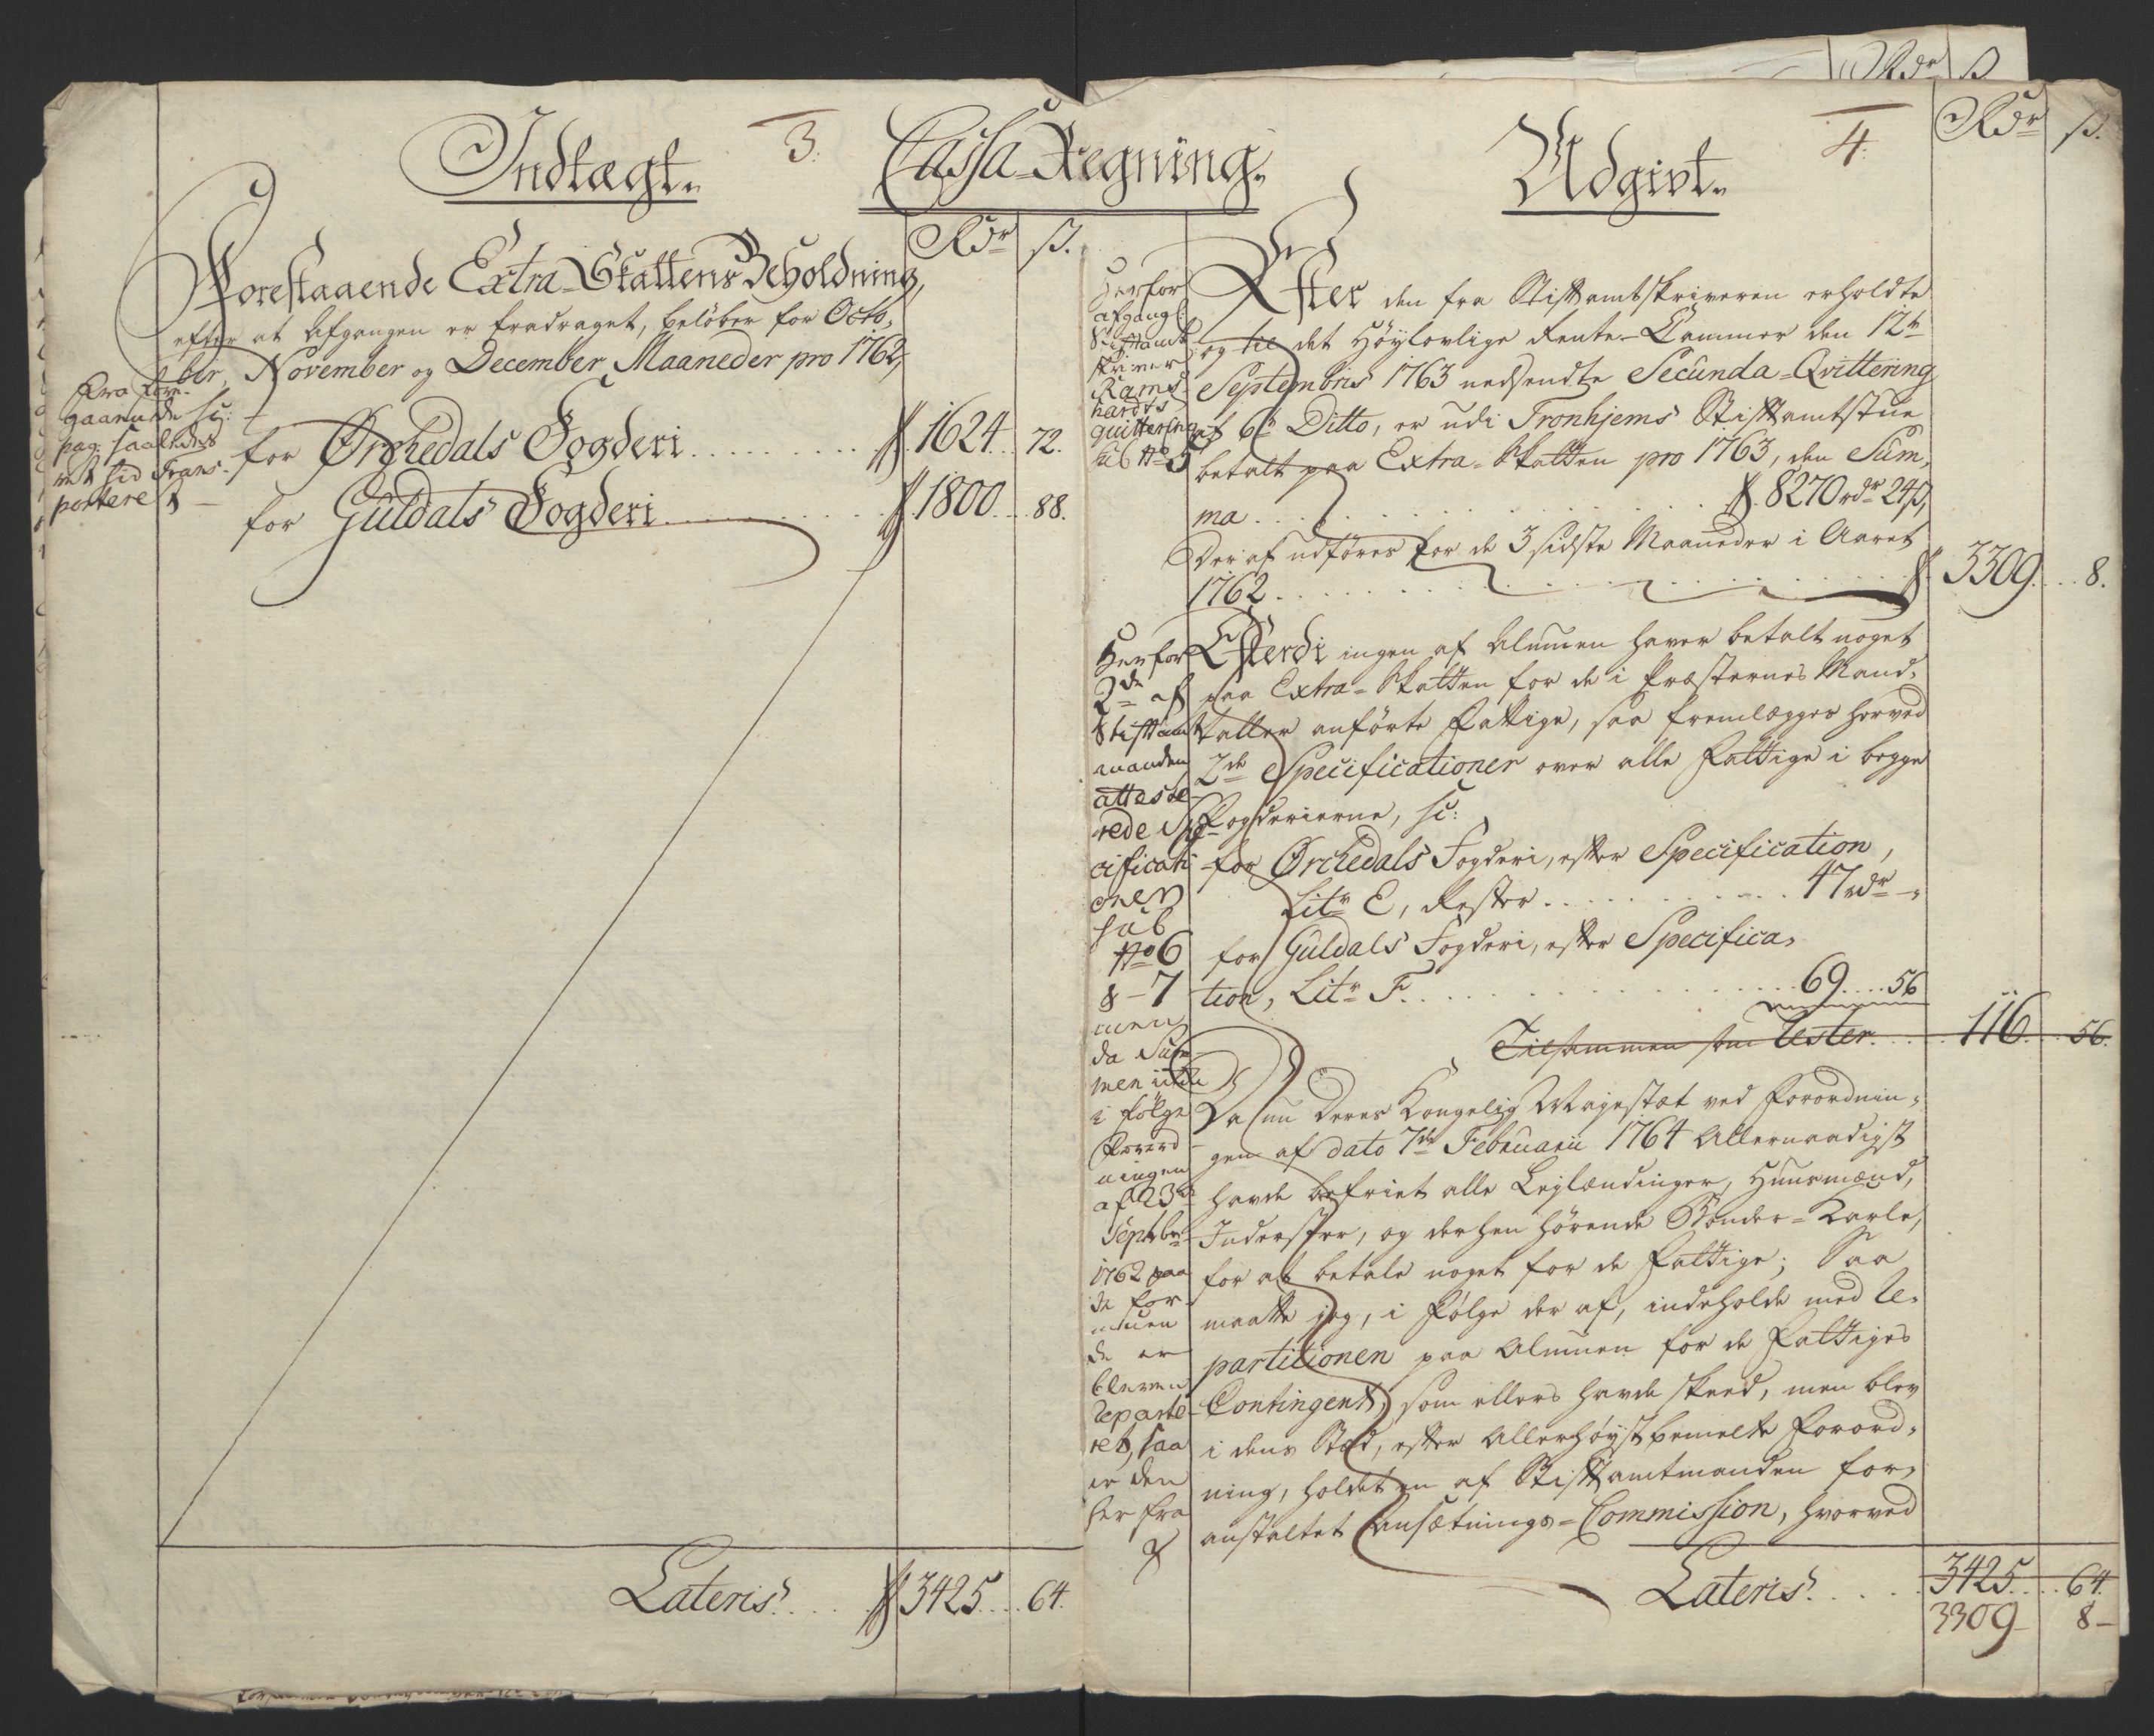 Indtægt.
3.
Cassa-Regning.
Rdr ß.
Forestaaende Extra-Skattens Beholdning,
efter at Afgangen er fradraget, beløber for Octo,
ber, November og December Maaneder pro 1762,
Fra fore-
gaaende
pag: saaledes
ret hid Trans-
portere
for Ørchedals Fogderi 1624 72.
for Guldals Fogderi 1800 88.
Lateris 3425 64.
Rdr ß
Udgivt.
4.
Rdr ß.
Herfor
afgangl:
Stiftamt
skriver
Rams
hardts
quittering
sub No 5
Efter den fra Stiftamtskriveren erholdte
og til det Høylovlige Rente-Cammer den 12te
Septembris 1763 nedsendte Secunda-Qvittering
af 6te Ditto, er udi Tronhjems Stiftamtstue
betalt paa Extra-Skatten pro 1763, den Sum,
ma 8270 rdr 24 ß,
Der af udføres for de 3 sidste Maaneder i Aaret
1762 3309 8.
Herfor
2de af
Stiftamt
manden
atteste-
rede Spe-
cificati
oner
sub
No 6
& - 7
men
da Sum
men
i følge
Forord
ningen
af 23de
Septbr:
1762 paa
de for
muen
de er
bleven
reparte-
ret, saa
er den
her fra
Efterdi ingen af Almuen haver betalt noget
paa Extra-Skatten for de i Præsternes Mand,
taller anførte Fattige, saa fremlægges herved
2de Specificationer over alle Fattige i begge
Fogderierne, sc:
for Ørchedals Fogderi, efter Specification,
Litr E, Rester 47 rdr -
for Guldals Fogderi, efter Specifica,
tion, Litr F 69 56
Tilsammen som Rester 116 56.
Da nu Deres Kongelig Majestæt ved Forordnin,
gen af dato 7de Februarii 1764 Allernaadigst
havde befriet alle Leylændinger, Huusmænd,
Inderster, og derhen hørende Bønder-Karle,
for at betale noget for de Fattige; Saa
maatte jeg, i Følge der af, indeholde med Re,
partitionen paa Almuen for de Fattiges
Contingent, som ellers havde skeed, men blev
i dens Sted, efter Allerhøystbemelte Forord,
ning, holdet en af Stiftamtmanden for,
anstaltet Ansætnings-Commission, hvorved
Lateris 3425 64.
3309 8-